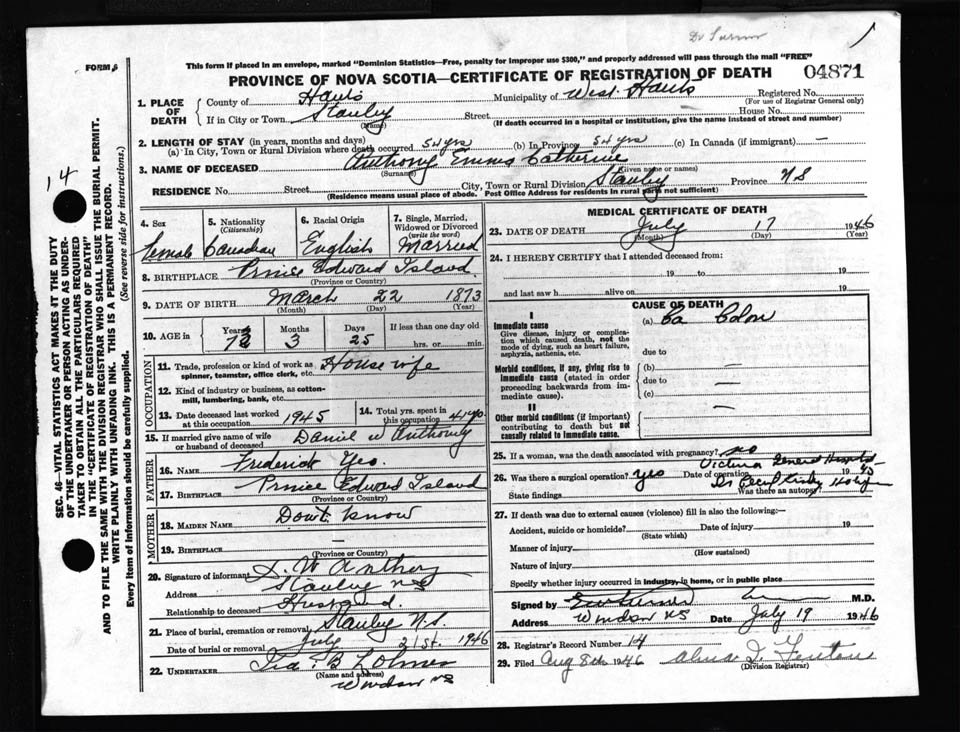 Dr Turner
This form if placed in an envelope, marked "Dominion Statistics—Free, penalty for improper use $300," and properly addressed will pass through the mail "FREE"
FORM 6
PROVINCE OF NOVA SCOTIA—CERTIFICATE OF REGISTRATION OF DEATH 04871
1. PLACE OF DEATH
County of Hants Municipality of West Hants Registered No.
(For use of Registrar General only)
If in City or Town Stanley Street House No.
(Name) (If death occurred in a hospital or institution, give the name instead of street and number)
2. LENGTH OF STAY (in years, months and days)
(a) In City, Town or Rural Division where death occurred 54 yrs (b) In Province 54 yrs (c) In Canada (if immigrant) —
3. NAME OF DECEASED Anthony Emma Catherine
(Surname) (Given name or names)
RESIDENCE No. Street City, Town or Rural Division Stanley Province N S
(Residence means usual place of abode. Post Office Address for residents in rural parts not sufficient)
4. Sex Female
5. Nationality (Citizenship) Canadian
6. Racial Origin English
7. Single, Married, Widowed or Divorced (write the word) Married
8. BIRTHPLACE Prince Edward Island
(Province or Country)
9. DATE OF BIRTH March 22 1873
(Month) (Day) (Year)
10. AGE in Years Months 3 Days 25 If less than one day old hrs. or min.
OCCUPATION
11. Trade, profession or kind of work as spinner, teamster, office clerk, etc. House wife
12. Kind of industry or business, as cotton-mill, lumbering, bank, etc.
13. Date deceased last worked at this occupation 1945
14. Total yrs. spent in this occupation 41 yrs
15. If married give name of wife or husband of deceased Daniel W Anthony
FATHER
16. NAME Frederick Yeo.
17. BIRTHPLACE Prince Edward Island
(Province or Country)
MOTHER
18. MAIDEN NAME Dont know
19. BIRTHPLACE —
(Province or Country)
20. Signature of informant D. W Anthony
Address Stanley NS
Relationship to deceased Husband.
21. Place of burial, cremation or removal Stanley N.S.
Date of burial or removal July 21st. 1946
22. UNDERTAKER B
(Name and address)
Windsor NS
MEDICAL CERTIFICATE OF DEATH
23. DATE OF DEATH July 17 1946
(Month) (Day) (Year)
24. I HEREBY CERTIFY that I attended deceased from:
19 to 19
and last saw h alive on 19
CAUSE OF DEATH
I
Immediate cause
Give disease, injury or complication which caused death, not the mode of dying, such as heart failure, asphyxia, asthenia, etc.
(a) Ca Colon
due to
Morbid conditions, if any, giving rise to immediate cause (stated in order proceeding backwards from immediate cause).
(b) —
due to —
(c)
II
Other morbid conditions (if important) contributing to death but not causally related to immediate cause. —
25. If a woman, was the death associated with pregnancy? no
Victoria General Hospital
26. Was there surgical operation? yes Date of operation 19 45
State findings Was there autopsy?
27. If death was due to external causes (violence) fill in also the following:—
Accident, suicide or homicide? Date of injury 19
(State which)
Manner of injury
(How sustained)
Nature of injury
Specify whether injury occurred in industry, in home, or in public place
Signed by M.D.
Address Windsor NS Date July 19 1946
28. Registrar's Record Number 14
29. Filed Aug 8th 1946 Alma I. Fenton
(Division Registrar)
14
SEC. 46—VITAL STATISTICS ACT MAKES IT THE DUTY
OF THE UNDERTAKER OR PERSON ACTING AS UNDER-
TAKER TO OBTAIN ALL THE PARTICULARS REQUIRED
IN THE "CERTIFICATE OF REGISTRATION OF DEATH"
AND TO FILE THE SAME WITH THE DIVISION REGISTRAR WHO SHALL ISSUE THE BURIAL PERMIT.
WRITE PLAINLY WITH UNFADING INK. THIS IS A PERMANENT RECORD.
Every item of information should be carefully supplied. (See reverse side for instructions.)